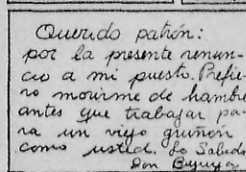 Querido patrón:
por la presente renun-
cio a mi puesto. Prefie-
ro morirme de hambre
antes que trabajar pa-
ra un viejo gruñón
como usted. Lo Saluda
Don